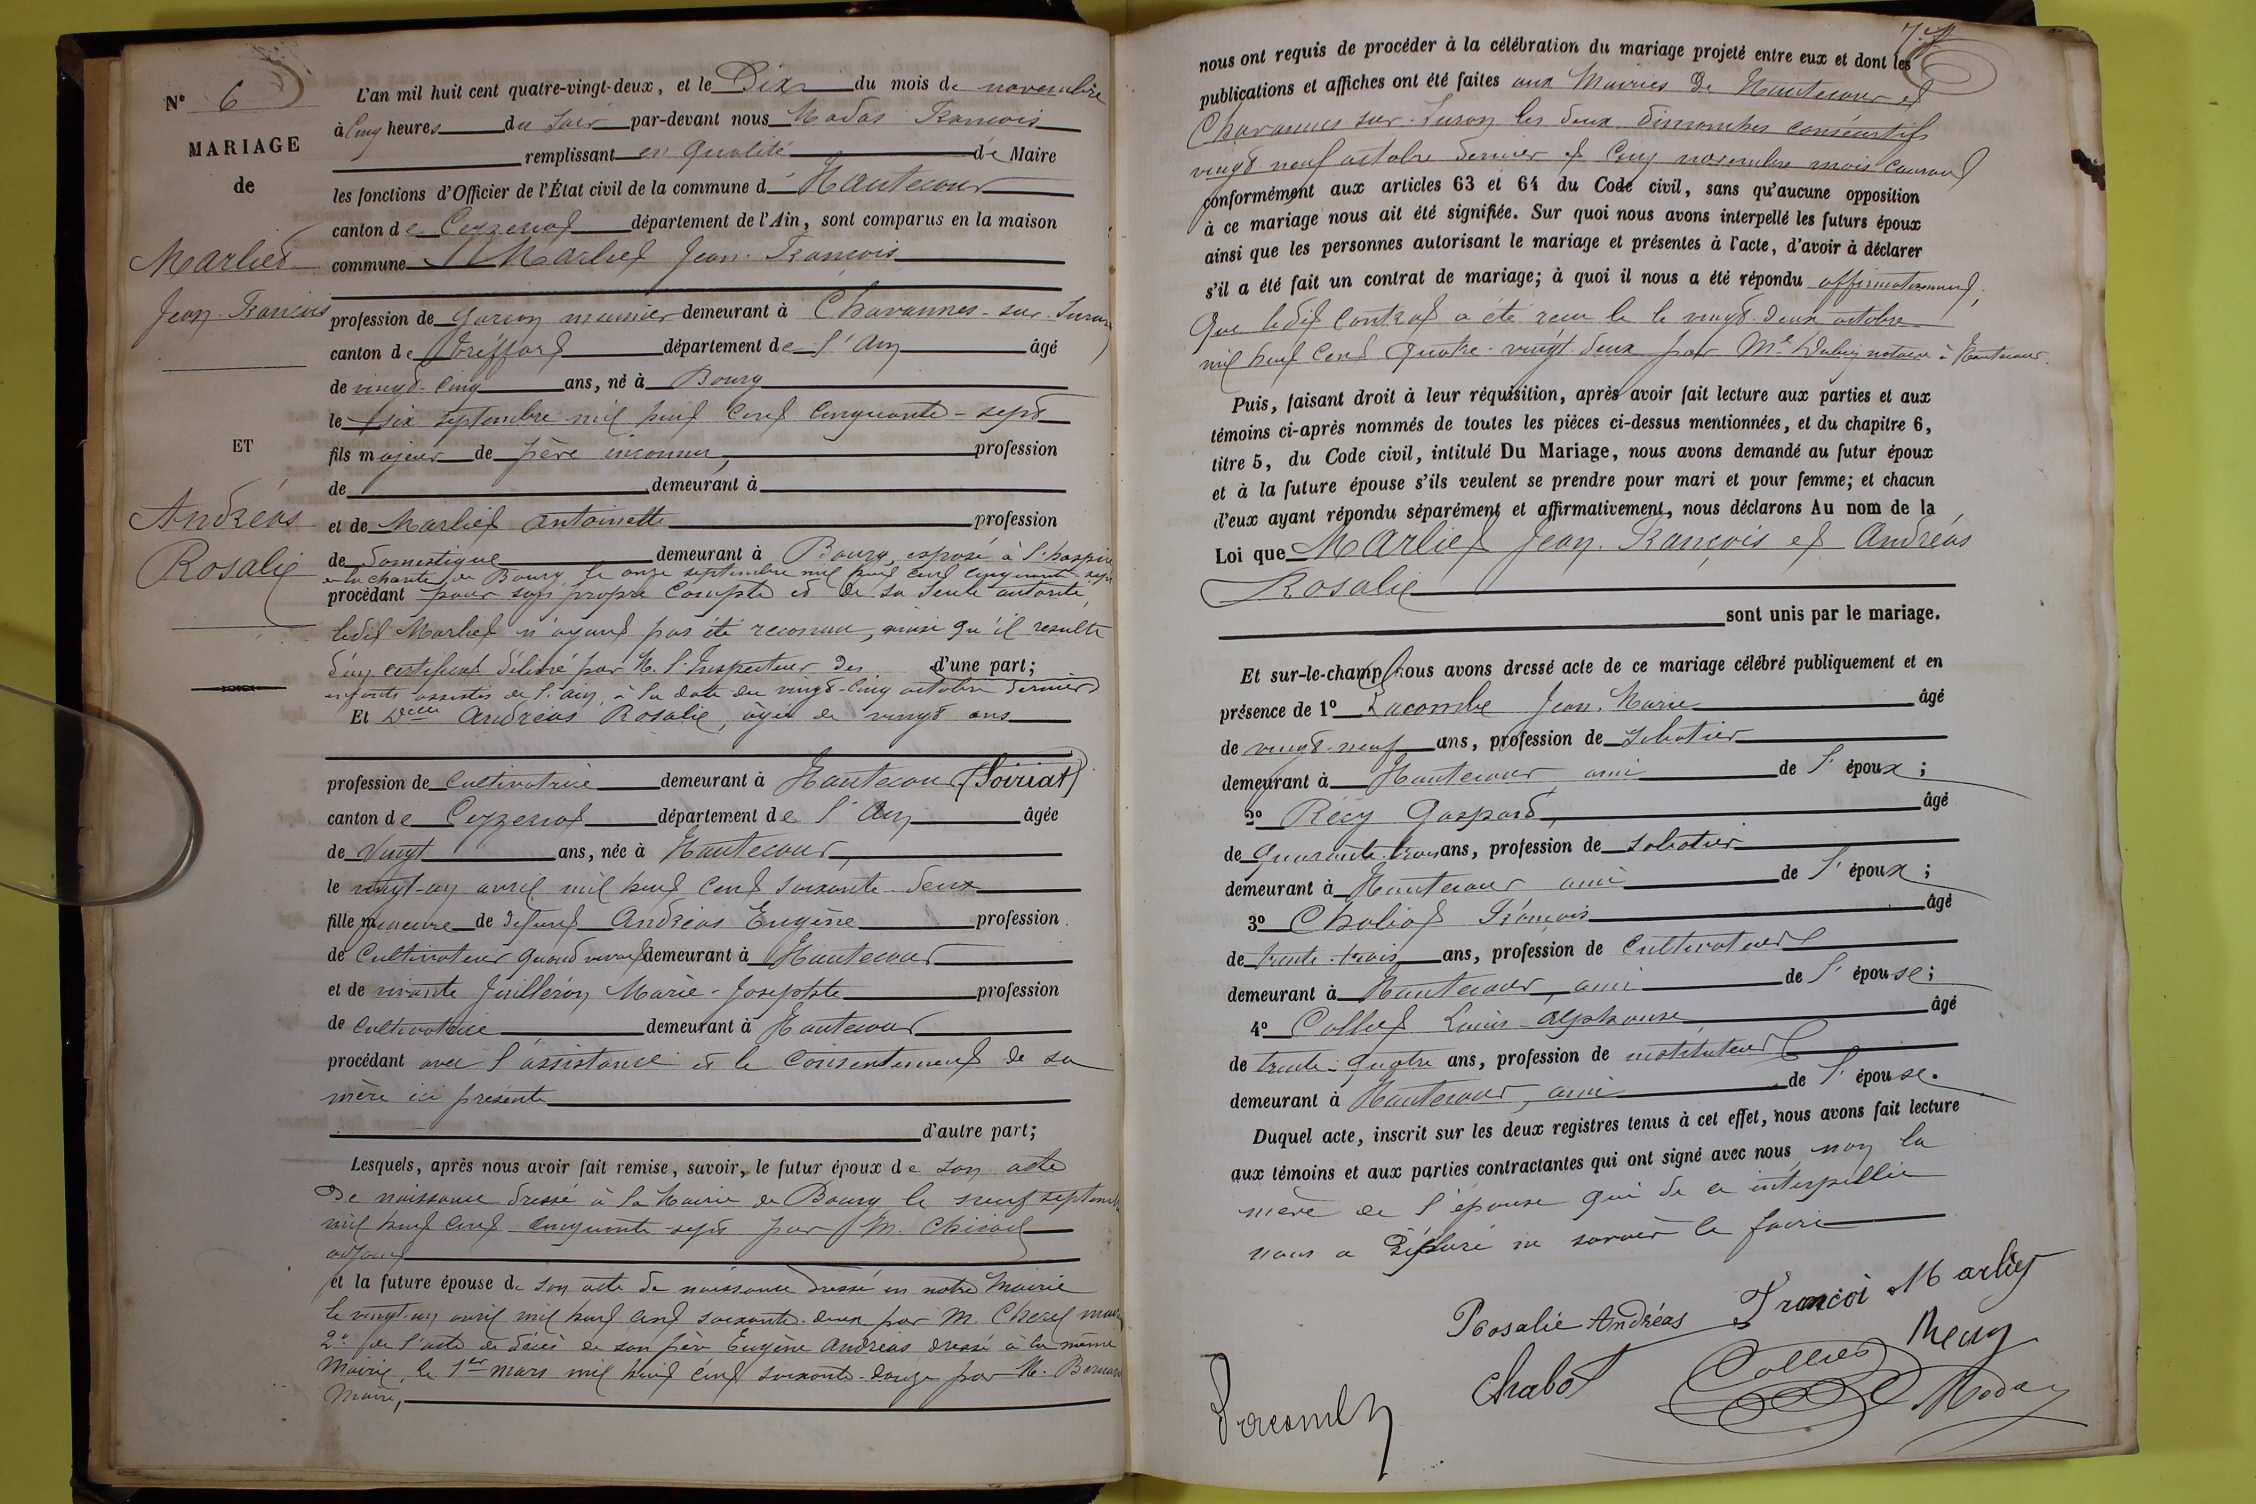 N° 6
MARIAGE
de
Marliet
Jean-François
ET
Andréas
Rosalie
L'an mil huit cent quatre-vingt-deux, et le Dix du mois de novembre
à Cinq heures du soir par-devant nous Nodas François
remplissant en qualité de Maire
les fonctions d'Officier de l'État civil de la commune d' Hautecour
canton de Ceyzeriat département de l'Ain, sont comparus en la maison
commune Marliet Jean-François
profession de garçon meunier demeurant à Chavannes-sur-Suran
canton de Treffort département de l'Ain âgé
de vingt-cinq ans, né à Bourg
le six septembre mil huit cent cinquante-sept
fils majeur de père inconnu, profession
de demeurant à
et de Marliet Antoinette profession
de domestique demeurant à Bourg, exposé à l'hospice
de la charité de Bourg le onze septembre mil huit cent cinquante-sept
procédant pour son propre compte et de sa seule autorité,
ledit Marliet n'ayant pas été reconnu, ainsi qu'il résulte
d'un certificat délivré par M. l'Inspecteur des d'une part;
enfants assistés de l'Ain, à la date du vingt-cinq octobre dernier
Et Delle Andréas Rosalie, âgée de vingt ans
profession de cultivatrice demeurant à Hautecour (Soiriat)
canton de Ceyzeriat département de l'Ain âgée
de vingt ans, née à Hautecour,
le vingt-un avril mil huit cent soixante-deux
fille mineure de défunt Andréas Eugène profession
de cultivateur quand vivait demeurant à Hautecour
et de vivante Juilléron Marie-Josephte profession
de cultivatrice demeurant à Hautecour
procédant avec l'assistance et le consentement de sa
mère ici présente
d'autre part;
Lesquels, après nous avoir fait remise, savoir, le futur époux de son acte
de naissance dressé à la Mairie de Bourg le neuf septembre
mil huit cent cinquante-sept par M.
adjoint
et la future épouse de son acte de naissance dressé en notre Mairie
le vingt-un avril mil huit cent soixante-deux par M. maire
2° de l'acte de décès de son père Eugène Andréas dressé à la même
Mairie, le 1er mars mil huit cent soixante-douze par M.
Maire,
nous ont requis de procéder à la célébration du mariage projeté entre eux et dont les
publications et affiches ont été faites aux Mairies de Hautecour et
Chavannes-sur-Suran les deux dimanches consécutifs
vingt neuf octobre dernier et cinq novembre mois courant
conformément aux articles 63 et 64 du Code civil, sans qu'aucune opposition
à ce mariage nous ait été signifiée. Sur quoi nous avons interpellé les futurs époux
ainsi que les personnes autorisant le mariage et présentes à l'acte, d'avoir à déclarer
s'il a été fait un contrat de mariage; à quoi il nous a été répondu affirmativement,
que ledit contrat a été reçu le le vingt-deux octobre
mil huit cent quatre-vingt-deux par Me notaire à Hautecour.
Puis, faisant droit à leur réquisition, après avoir fait lecture aux parties et aux
témoins ci-après nommés de toutes les pièces ci-dessus mentionnées, et du chapitre 6,
titre 5, du Code civil, intitulé Du Mariage, nous avons demandé au futur époux
et à la future épouse s'ils veulent se prendre pour mari et pour femme; et chacun
d'eux ayant répondu séparément et affirmativement, nous déclarons Au nom de la
Loi que Marliet Jean-François et Andréas
Rosalie
sont unis par le mariage.
Et sur-le-champ nous avons dressé acte de ce mariage célébré publiquement et en
présence de 1° Lacombe Jean-Marie âgé
de vingt-neuf ans, profession de sabotier
demeurant à Hautecour ami de l'époux;
2° Récy Gaspard, âgé
de quarante-trois ans, profession de sabotier
demeurant à Hautecour ami de l'époux;
3° François âgé
de trente-trois ans, profession de cultivateur
demeurant à Hautecour, ami de l'épouse;
4° Collet Louis-Alphonse âgé
de trente-quatre ans, profession de instituteur
demeurant à Hautecour, ami de l'épouse.
Duquel acte, inscrit sur les deux registres tenus à cet effet, nous avons fait lecture
aux témoins et aux parties contractantes qui ont signé avec nous non la
mère de l'épouse qui de ce interpellée
nous a déclaré ne savoir le faire
Rosalie Andréas Françoi Marliet
Chabot Collet Recy
Lacombe Nodas